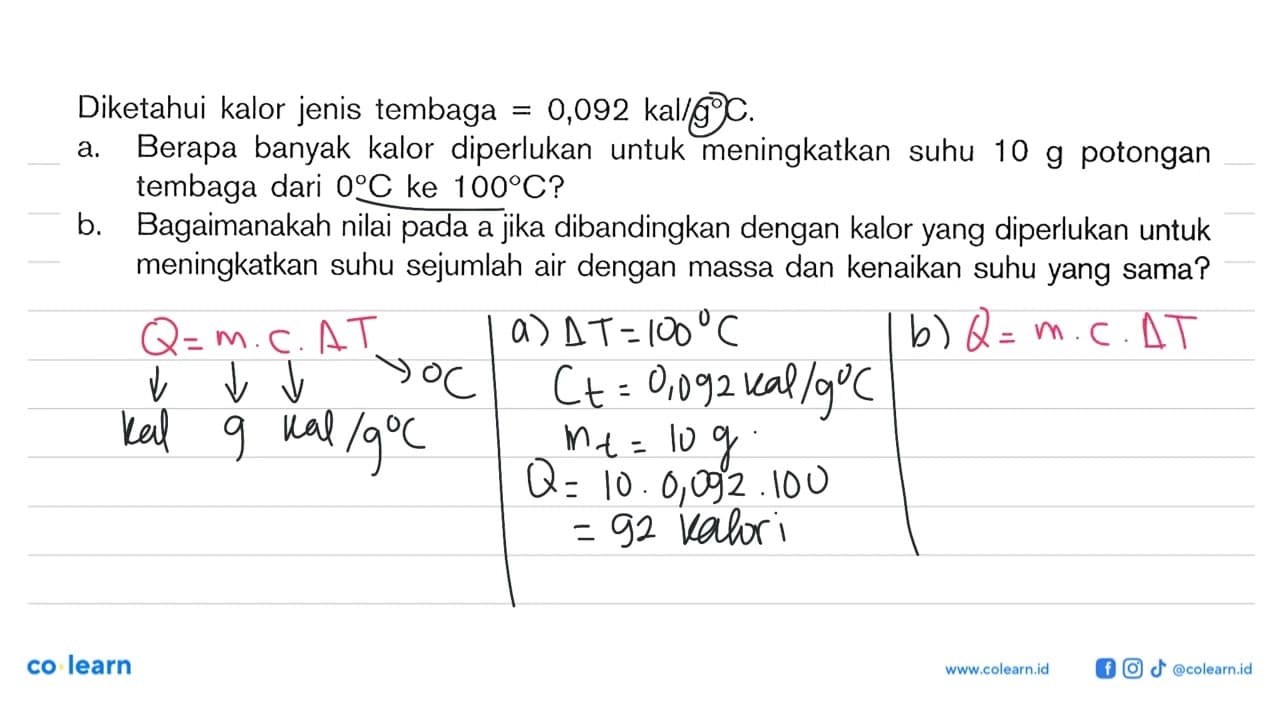 Diketahui kalor jenis tembaga = 0,092 kal/g°C.
a. Berapa banyak kalor diperlukan untuk meningkatkan suhu 10 g potongan
tembaga dari 0°C ke 100°C?
b. Bagaimanakah nilai pada a jika dibandingkan dengan kalor yang diperlukan untuk
meningkatkan suhu sejumlah air dengan massa dan kenaikan suhu yang sama?
Q = m . c . ΔT
↓ ↓ ↓ → °C
kal g kal/g°C
a) ΔT = 100°C
Ct = 0,092 kal/g°C
mt = 10 g .
Q = 10 . 0,092 . 100
= 92 kalori
b) Q = m . c . ΔT
co·learn
www.colearn.id
@colearn.id